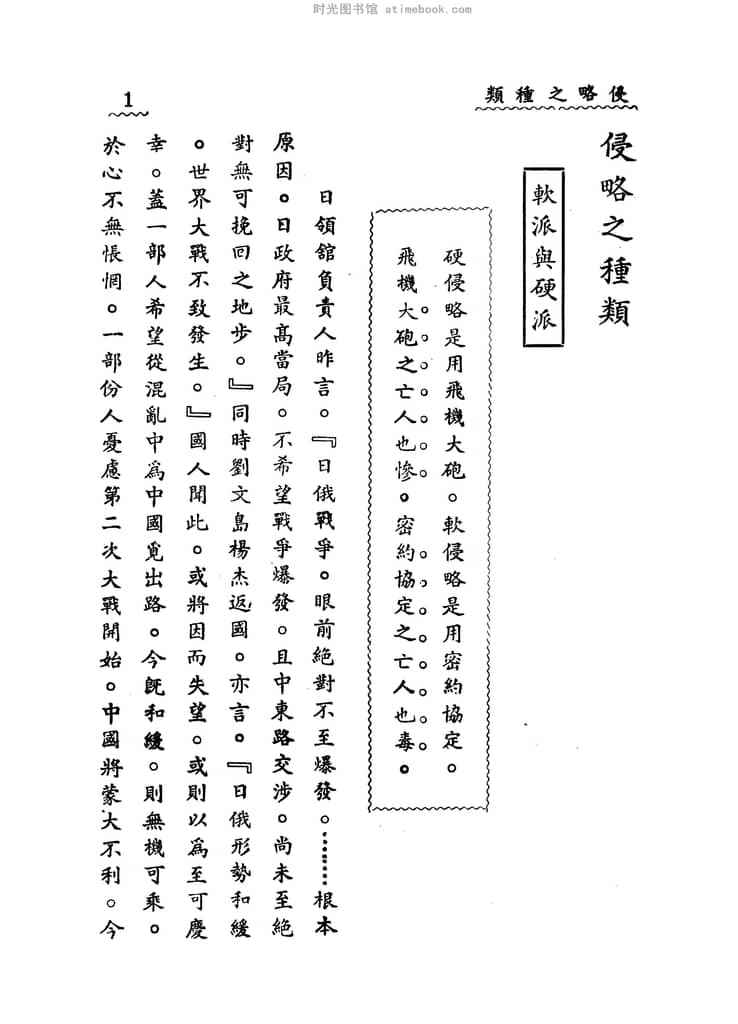 时光图书馆 atimebook.com
侵略之種類
1
侵略之種類
軟派與硬派
硬侵略是用飛機大砲。軟侵略是用密約協定。
飛機大砲之亡人也慘。密約協定之亡人也毒。
日領舘負責人昨言。『日俄戰爭。眼前絕對不至爆發。………根本
原因。日政府最高當局。不希望戰爭爆發。且中東路交涉。尚未至絕
對無可挽回之地步。』同時劉文島楊杰返國。亦言。『日俄形勢和緩
。世界大戰不致發生。』國人聞此。或將因而失望。或則以爲至可慶
幸。蓋一部人希望從混亂中爲中國覓出路。今旣和緩。則無機可乘。
於心不無悵惘。一部份人憂慮第二次大戰開始。中國將蒙大不利。今